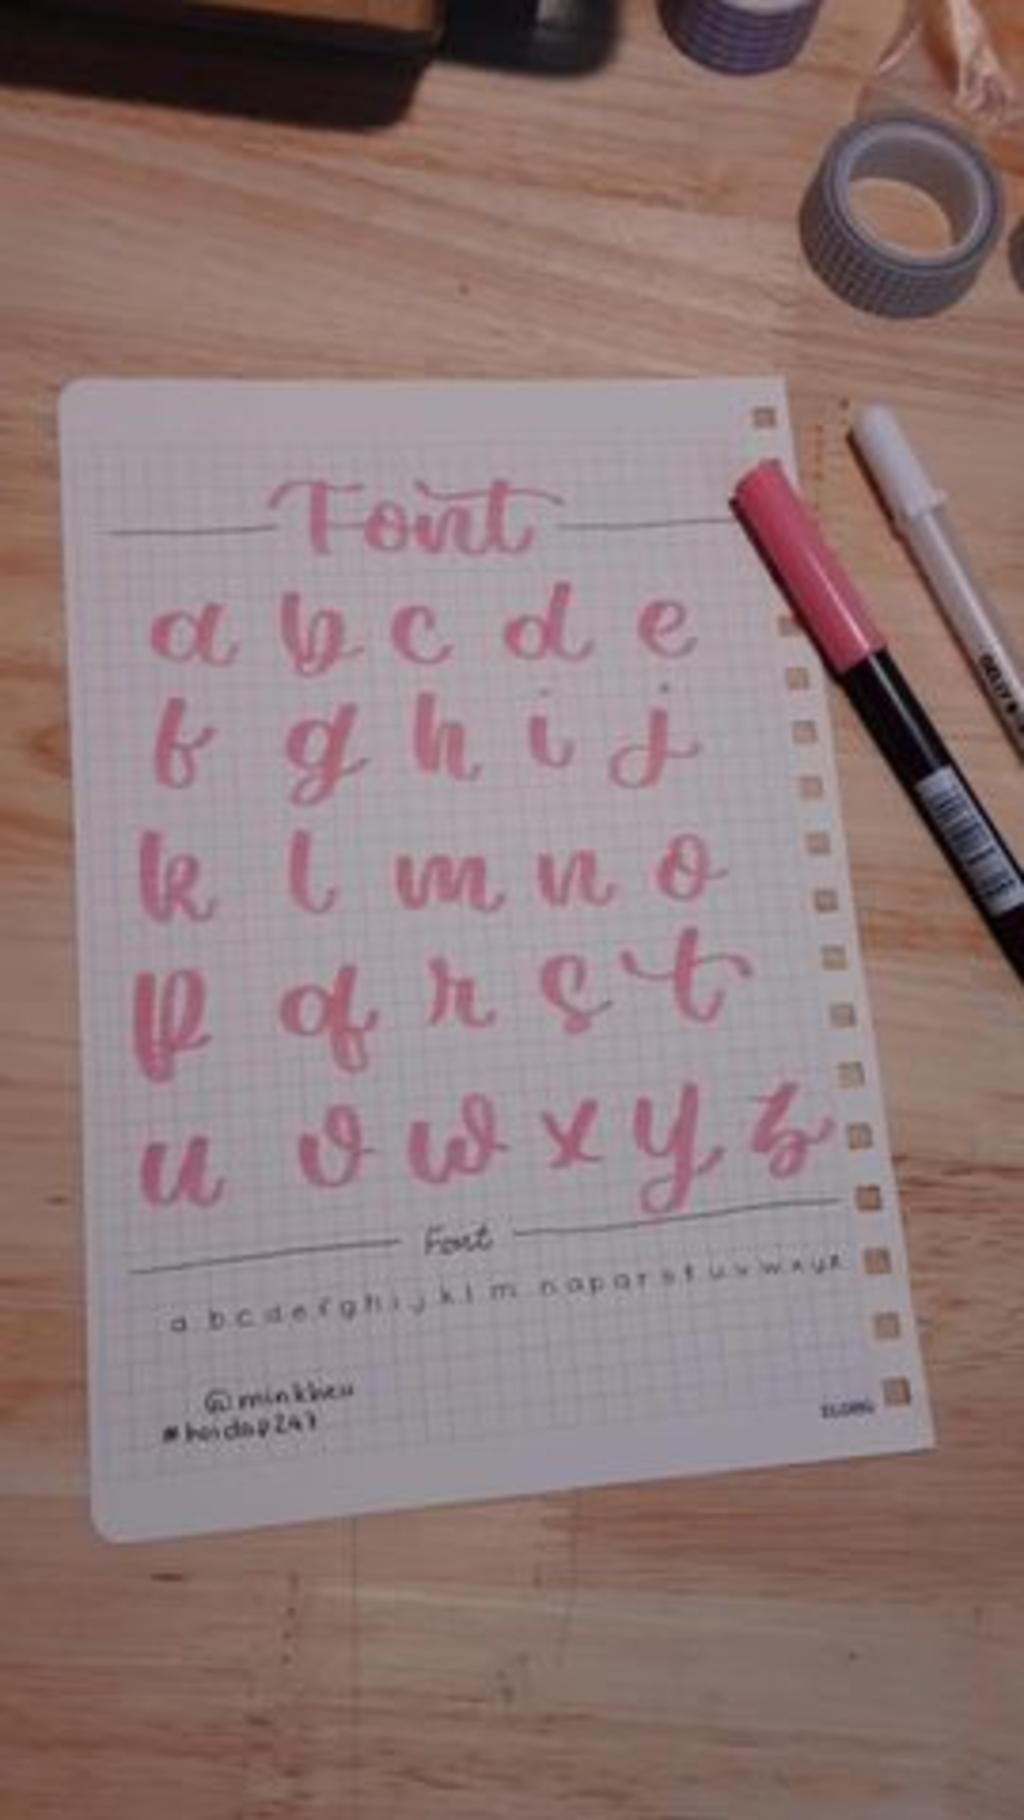 Font
a b c d e
f g h i j
k l m n o
p q r s t
u v w x y z
Font
a b c d e f g h i j k l m n o p q r s t u v w x y z
#hoidap247